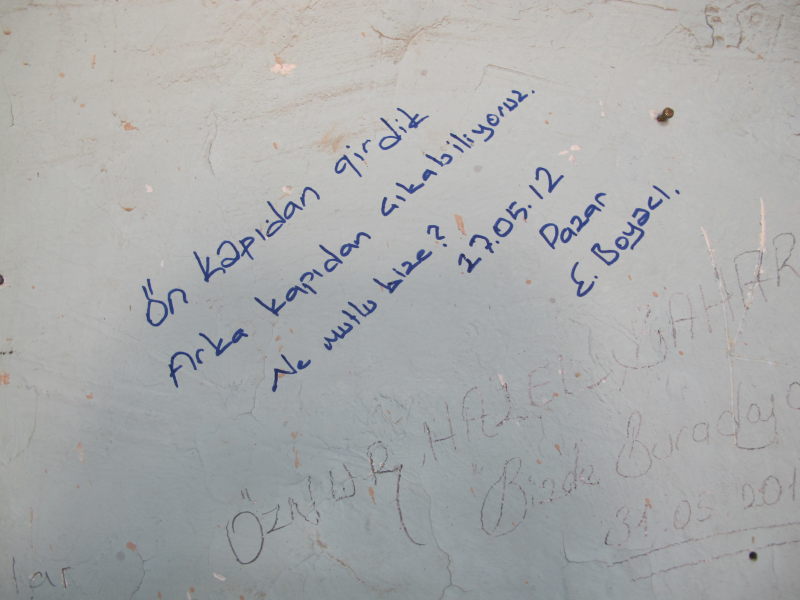 Ön kapıdan girdik
Arka kapıdan çıkabiliyoruz.
Ne mutlu bize?
27.05.12
Pazar
E. Boyacı.
ÖZNUR, HAZEL,
Bizde Buraday
31.05.201
lar